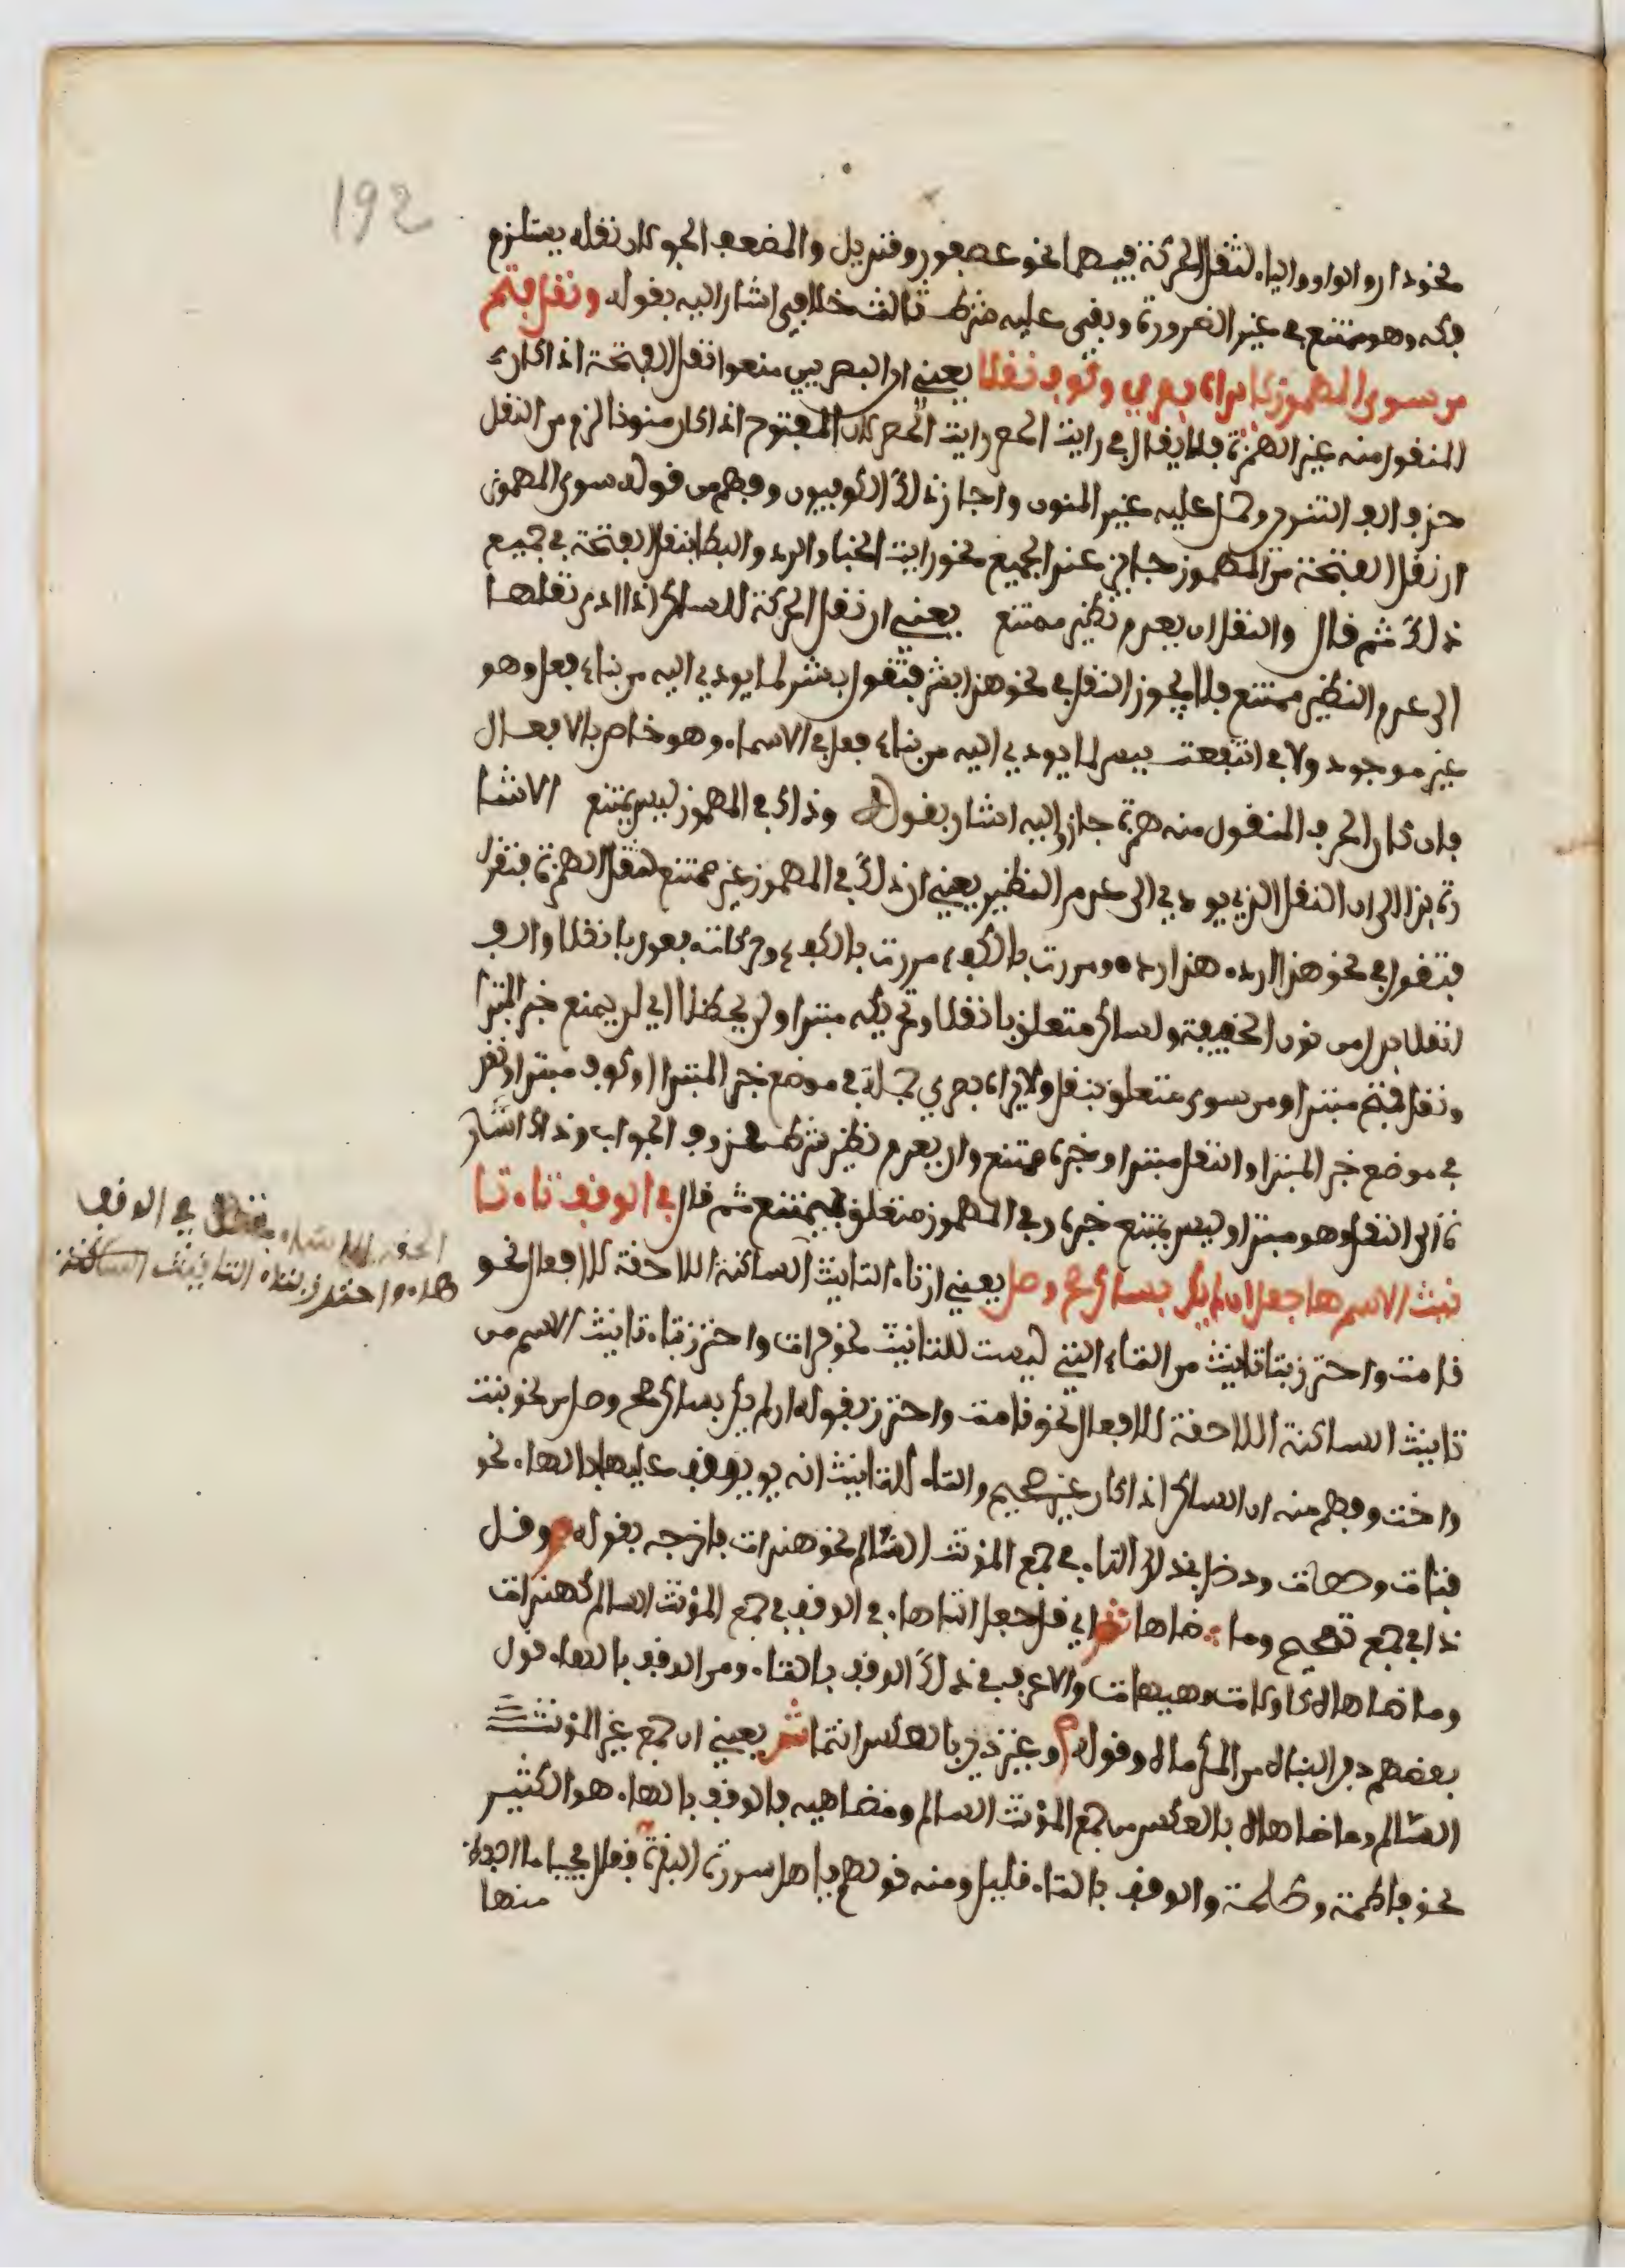 192
نحو دار والواو والياء لثقل الحركة فيهما نحو عصفور وقنديل والمضعف الجو كان نقله يستلزم
فكه وهو ممتنع في غير الضرورة وبقي عليه شرط ثالث خلافي اشار اليه بقوله ونقل فتح
من سوى المهموز لا يراه بصري وكوف نقلا يعني ان البصريين منعوا نقل الفتحة اذا كان
المنقول منه غير الهمزة فلا يقال في رايت الحصر رايت الحصر لان المفتوح اذا كان منونا لزم من النقل
حذف الف التنوين وحمل عليه غير المنون واجاز ذلك الكوفيون وفهم من قوله سوى المهموز
ان نقل الفتحة من المهموز جائز عند الجميع نحو رايت الخبا والرد والبطا بنقل الفتحة في جميع
ذلك ثم قال والنقل ان يعدم نظير ممتنع يعني ان نقل الحركة للساكن اذا ادى نقلها
الى عدم النظير ممتنع فلا يجوز النقل في نحو هذا بشر فتقول بشر لما يودي اليه من بناء فعل وهو
غير موجود ولا في انتفعت ببسر لما يودي اليه من بناء فعل في الاسماء وهو خاص بالافعال
فان كان الحرف المنقول منه همزة جاز واليه اشار بقوله وذاك في المهموز ليس يمتنع الاشا
رة بذا الى ان النقل الذي يودي الى عدم النظير يعني ان ذلك في المهموز غير ممتنع لثقل الهمزة فتقل
فتقول في نحو هذا الردء هذا ردء ومررت بالكفء مررت بالكفء وحركاته مفعول بانقلا والف
انقلا بدل من نون الخفيفة ولساكن متعلق بانقلا وتحريكه مبتدا ولن يحظلا اي لن يمنع خبر المبتدا
ونقل فتح مبتدا ومن سوى متعلق بنقل ولا يراه بصري جملة في موضع خبر المبتدا وكوف مبتدا ونقل
في موضع خبر المبتدا والنقل مبتدا وخبره ممتنع وان يعدم نظير شرط محذوف الجواب وذاك اشار
ة الى النقل وهو مبتدا وليس يمتنع خبره وفي المهموز متعلق بيمتنع ثم قال في الوقف تاء تا
نيث الاسم ها جعل ان لم يكن بساكن صح وصل يعني ان تاء التانيث الساكنة اللاحقة للافعال نحو
قامت واحترز بتا تانيث من التاء التي ليست للتانيث نحو فرات واحترز بتاء تانيث الاسم من
تانيث الساكنة اللاحقة للافعال نحو قامت واحترز بقوله ان لم يكن بساكن صح وصل من نحو بنت
واخت وفهم منه ان الساكن اذا كان غير صحيح والتاء للتانيث انه يوقف عليها بالهاء نحو
فتاة وحصاة ودخل بذلك التاء في جمع المؤنث السالم نحو هندات فاخرجه بقوله وقل
ذا في جمع تصحيح وما ضاها اي قل جعل التا هاء في الوقف في جمع المؤنث السالم كهندات
وما ضاهاه كاولات وهيهات والاعرف في ذلك الوقف بالتاء ومن الوقف بالهاء قول
بعضهم دفن البناه من المكرماه وقوله وغير ذين بالعكس انتما يعني ان جمع غير المؤنث
السالم وما ضاهاه بالعكس من جمع المؤنث السالم ومضاهيه فالوقف بالهاء هو الكثير
نحو فاطمة وطلحة والوقف بالتاء قليل ومنه قولهم يا اهل سورة البقرة فقال مجيبا ما احفظ
منها
في الوقف
هاء واحترز بتاء التانيث الساكنة